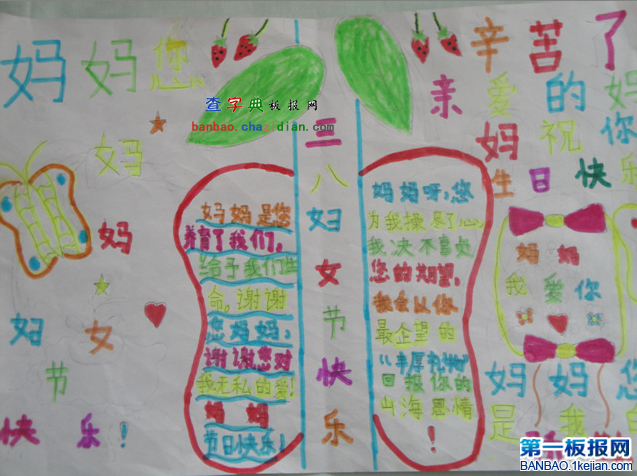 妈妈您
辛苦了
查字典板报网
banbao.chazidian.com
妈
妈
妇女
节
快乐!
妈妈是您
养育了我们,
给予我们生
命,谢谢
您妈妈,
谢谢您对
我无私的爱!
妈妈
节日快乐!
三
八
妇
女
节
快
乐
妈妈呀,您
为我操尽了心,
我决不辜负
您的期望,
我会以你
最企望的
“丰厚礼物”
回报你的
山海恩情
!
亲爱的妈
妈祝你
生日快乐
妈妈
我爱你
妈妈您
是我的
第一板报网
BANBAO.1kejian.com